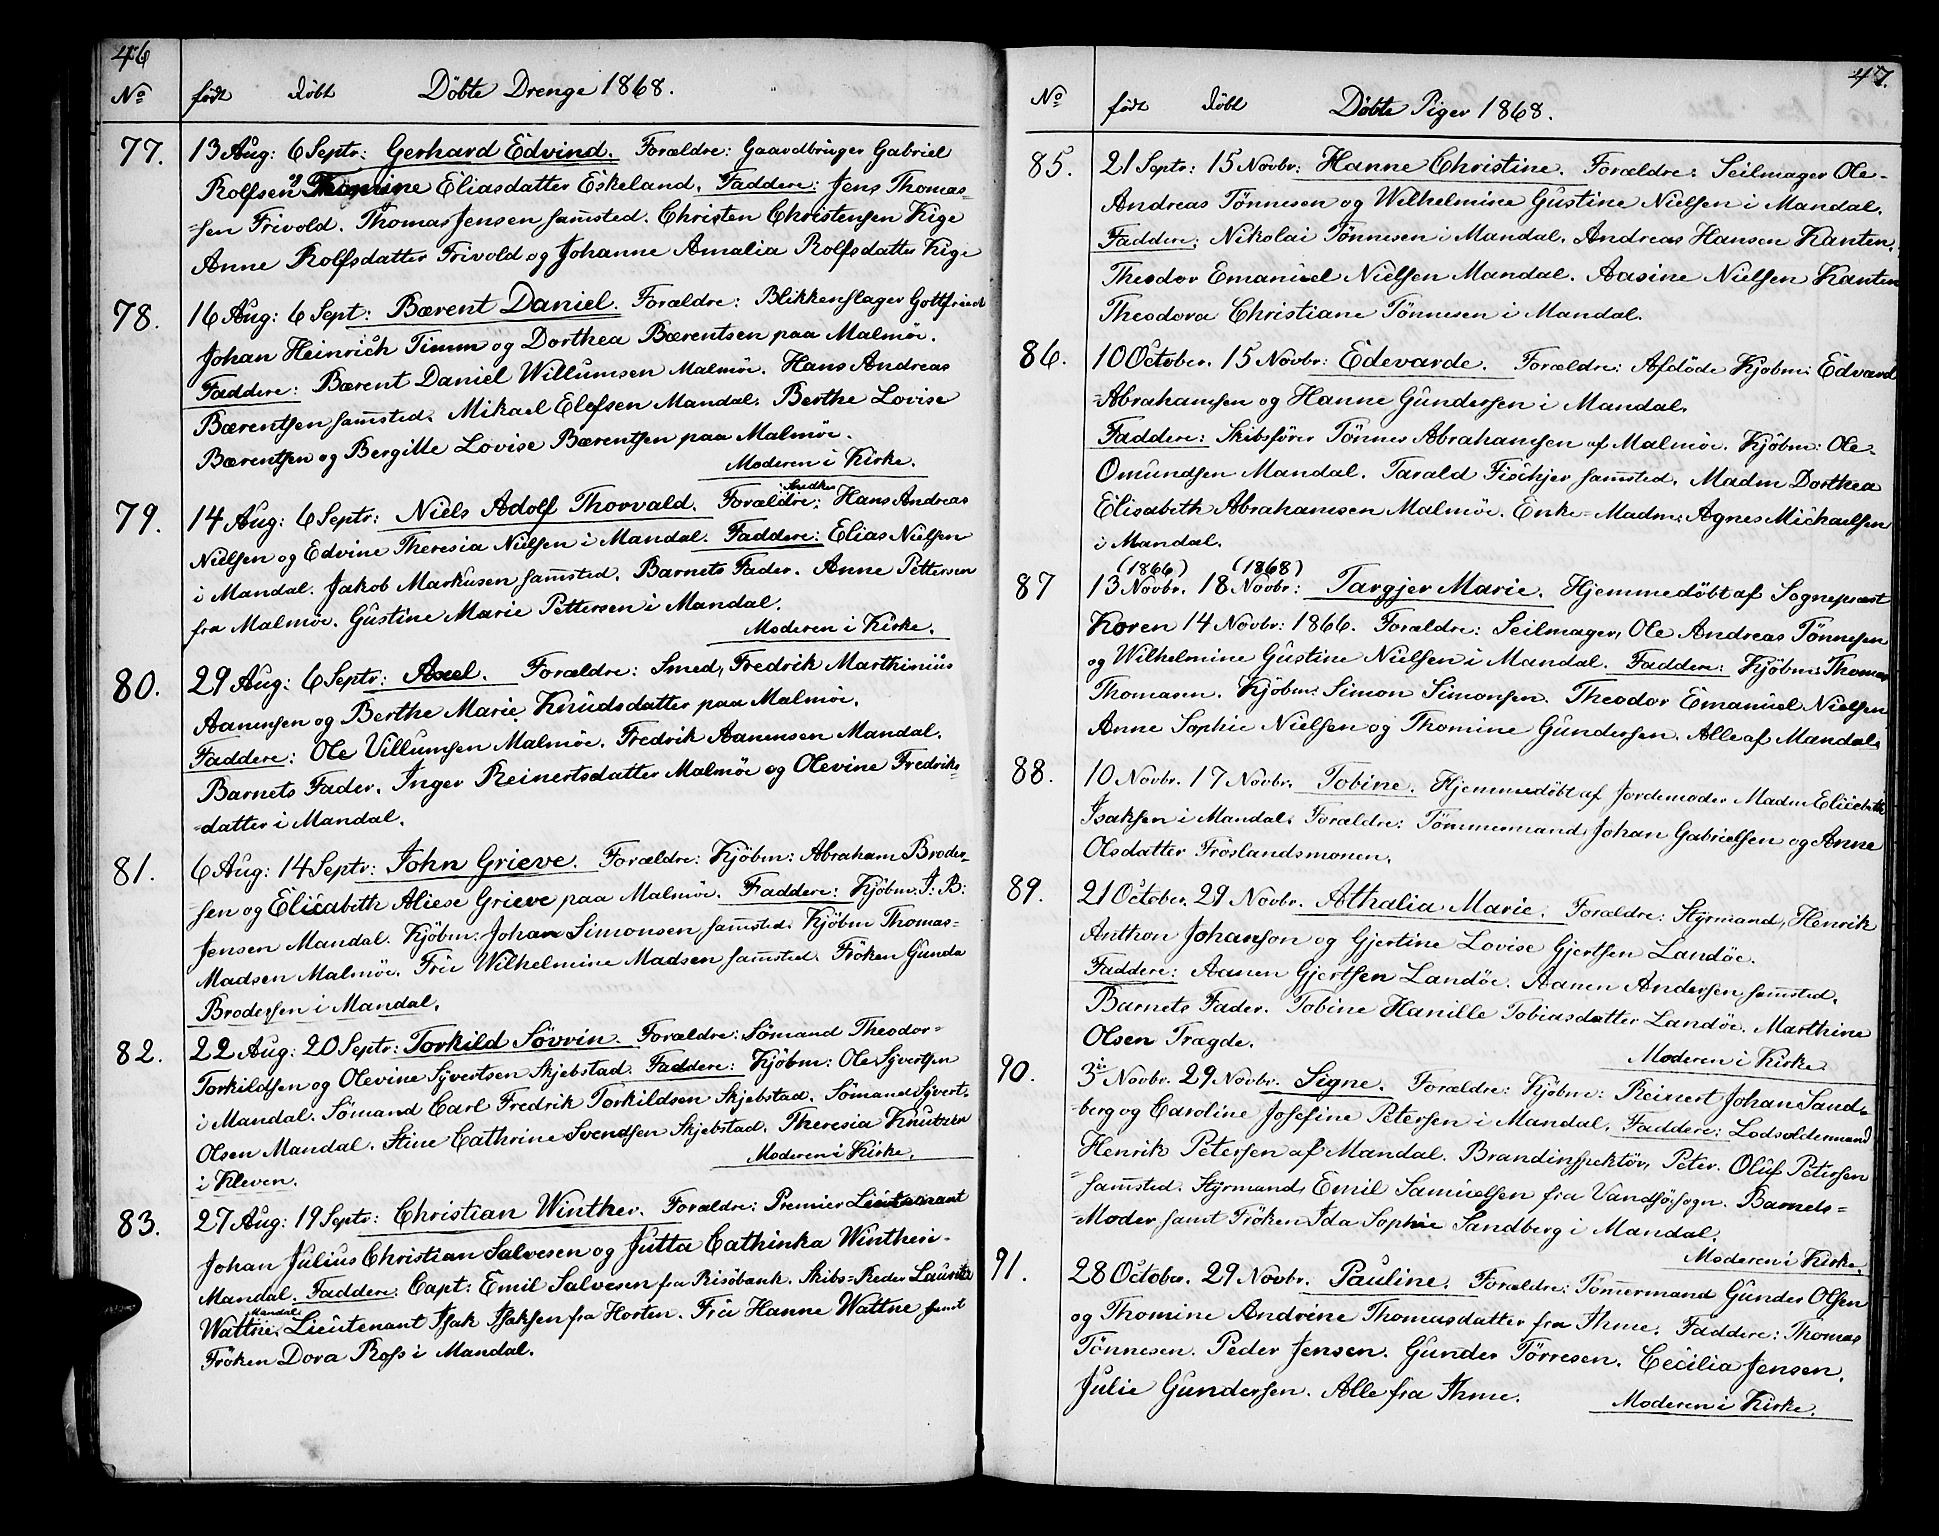 46
No født døbt Döbte Drenge 1868.
77. 13 Aug: 6 Septr: Gerhard Edvind. Forældre: Gaardbruger Gabriel
Rolfsen og Thomine Eliasdatter Eskeland. Faddere: Jens Thomas-
=sen Frivold. Thomas Jensen samsted. Christen Christensen Kige
Anne Rolfsdatter Frivold og Johanne Amalia Rolfsdatter Kige
78. 16 Aug: 6 Sept: Bærent Daniel. Forældre: Blikkenslager Gottfriedt
Johan Heinrich Timm og Dorthea Bærentsen paa Malmöe.
Faddere: Bærent Daniel Willumsen Malmöe. Hans Andreas
Bærentsen samsted. Mikael Elefsen Mandal. Berthe Lovise
Bærentsen og Bergitte Lovise Bærentsen paa Malmöe.
Moderen i Kirke.
79. 14 Aug: 6 Septr: Niels Adolf Thorvald. Forældre: Snedker Hans Andreas
Nielsen og Edvine Theresia Nielsen i Mandal. Faddere: Elias Nielsen
i Mandal. Jakob Markusen samsted. Barnets Fader. Anne Pettersen
fra Malmöe. Gustine Marie Pettersen i Mandal.
Moderen i Kirke.
80. 29 Aug: 6 Septr: Axel. Forældre: Smed, Fredrik Marthinius
Aanensen og Berthe Marie Knudsdatter paa Malmöe.
Faddere: Ole Villumsen Malmöe. Fredrik Aanensen Mandal.
Barnets Fader. Inger Reinertsdatter Malmöe og Olevine Fredriks-
=datter i Mandal.
81. 6 Aug: 14 Septr: John Grieve. Forældre: Kjöbm: Abraham Broder-
=sen og Elisabeth Aliese Grieve paa Malmöe. Faddere: Kjöbm: J: B:
Jensen Mandal. Kjöbm: Johan Simonsen samsted. Kjöbm Thomas=
Madsen Malmöe. Fru Wilhelmine Madsen samsted. Fröken Gunda
Brodersen i Mandal.
82. 22 Aug: 20 Septr: Torkild Sövrin. Forældre: Sömand Theodor=
Torkildsen og Olevine Syvertsen Skjebstad. Faddere: Kjöbm: Ole Syvertsen
i Mandal. Sömand Carl Fredrik Torkildsen Skjebstad. Sömand Syvert
Olsen Mandal. Stine Cathrine Svendsen Skjebstad. Theresia Knutsen
i Kleven. Moderen i Kirke.
83. 27 Aug: 19 Septr: Christian Winther. Forældre: Premier Lieutenant
Johan Julius Christian Salvesen og Jutta Cathinka Winther i-
Mandal. Faddere: Capt: Emil Salvesen fra Risöbank. Skibs=Reder Lauritz
Wattne Mandal. Lieutenant Isak Isaksen fra Horten. Fru Hanne Wattne samt
Fröken Dora Ross i Mandal.
47.
No født døbt Döbte Piger 1868.
85. 21 Septr: 15 Novbr: Hanne Christine. Forældre: Seilmager Ole-
Andreas Tönnesen og Wilhelmine Gustine Nielsen i Mandal.
Faddere: Nikolai Tönnesen i Mandal. Andreas Hansen Kanten.
Theodor Emanuel Nielsen Mandal. Aasine Nielsen Kanten
Theodora Christiane Tönnesen i Mandal.
86. 10 October. 15 Novbr: Edevarde. Forældre: Afdöde Kjöbm: Edvard
=Abrahamsen og Hanne Gundersen i Mandal.
Faddere: Skibsförer Tönnes Abrahamsen af Malmöe. Kjöbm: Ole-
Omundsen Mandal. Tarald Fiskjer samsted. Madm Dorthea
Elisabeth Abrahamsen Malmöe. Enke=Madm: Agnes Michaelsen
i Mandal.
(1866) (1868)
87 13 Novbr. 18 Novbr: Targjer Marie. Hjemmedöbt af Sogneprest
Koren 14 Novbr: 1866. Forældre: Seilmager, Ole Andreas Tönnesen
og Wilhelmine Gustine Nielsen i Mandal. Faddere: Kjöbm: Thomas
Thomann. Kjöbm: Simon Simonsen. Theodor Emanuel Nielsen
Anne Sophie Nielsen og Thomine Gundersen. Alle af Mandal.
88. 10 Novbr. 17 Novbr. Tobine. Hjemmedöbt af Jordemoder Madm Elisebeth
Isaksen i Mandal. Forældre: Tömmermand, Johan Gabrielsen og Anne
Olsdatter Fröslandsmonen.
89. 21 October. 29 Novbr. Athalia Marie. Forældre: Styrmand, Henrik
Anthon Johanson og Gjertine Lovise Gjertsen Landöe.
Faddere: Aanen Gjertsen Landöe. Aanen Andersen samsted.
Barnets Fader. Tobine Hanille Tobiasdatter Landöe. Marthine
Olsen Trægde.
Moderen i Kirke
90. 3die Novbr. 29 Novbr. Signe. Forældre: Kjöbm: Reinert Johan Sand=
=berg og Caroline Josefine Petersen i Mandal. Faddere: Lodsoldermand
Henrik Petersen af Mandal. Brandinspektör, Peter. Oluf Petersen
=samsted. Styrmand, Emil Samuelsen fra Vandsösogn. Barnets=
=Moder samt Fröken Ida Sophie Sandberg i Mandal.
Moderen i Kirke.
91. 28 October. 29 Novbr. Pauline. Forældre: Tömermand Gunder Olsen
og Thomine Andrine Thomasdatter fra Ihme. Faddere: Thomas
Tönnesen. Peder Jensen. Gunder Törresen. Cecilia Jensen.
Julie Gundersen. Alle fra Ihme. Moderen i Kirke.